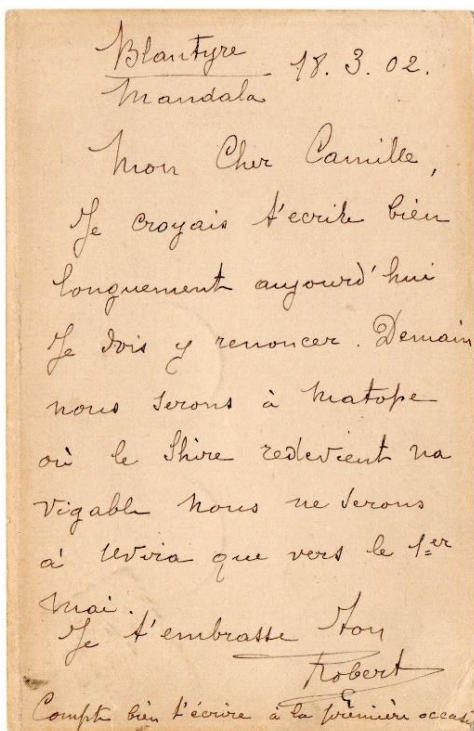 Blantyre 18. 3. 02.
Mandala
Mon Cher Camille,
Je croyais t'ecrire bien
longuement aujourd'hui
Je dois y renoncer. Demain
nous serons à Matope
où le Shire redevient na
vigable Nous ne serons
à Uvira que vers le 1er
Mai.
Je t'embrasse Ton
Robert
Compte bien t'écrire à la première occasi